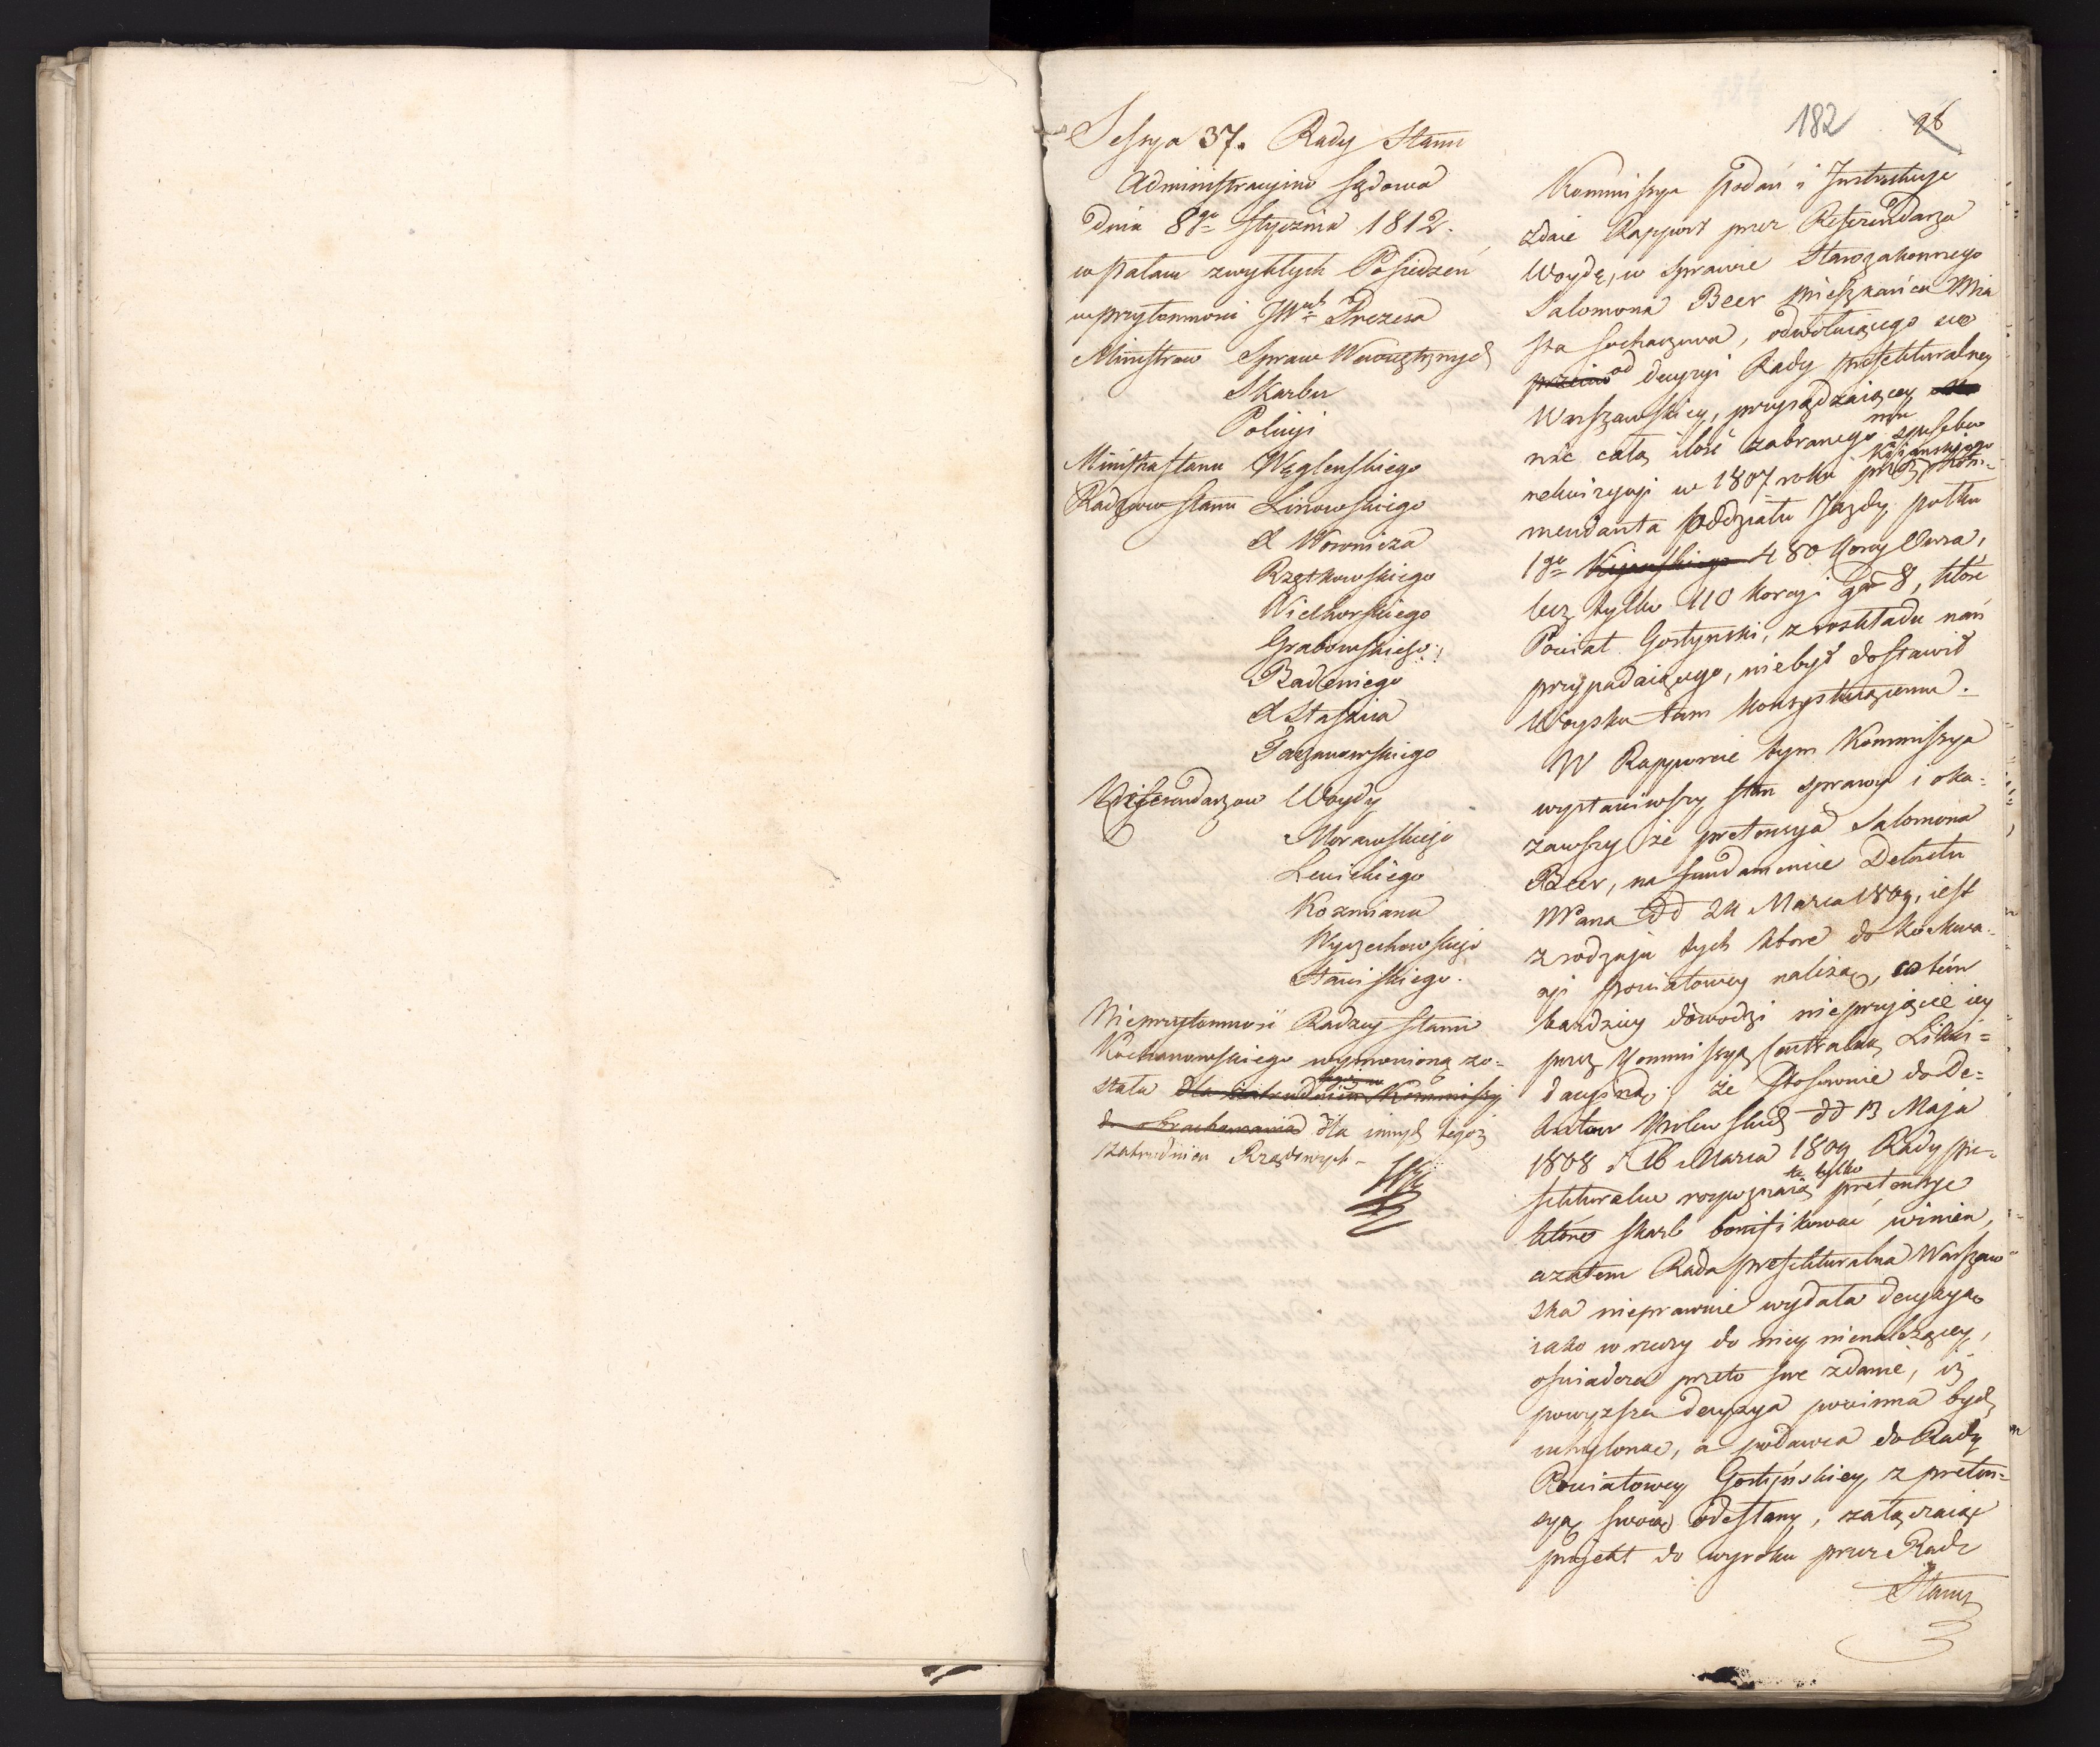 182
96
Sessya 37. Rady Stanu
Administracyino Sądowa
dnia 8go Stycznia 1812.
w Pałacu zwykłych Posiedzeń
w przytomności JW Prezesa
Ministrow Spraw Wewnętrznych
Skarbu
Policyi
Ministra Stanu Węglenskiego
Radzcow Stanu Linowskiego
A Woronicza
Rzętkowskiego
Wielhorskiego
Grabowskiego
Badeniego
X Staszica
Taczanowskiego
Referendarzow Woydy
Morawskiego
Lewickiego
Kozmiana
Wyczechowskiego
Stawiskiego.
Nieprzytomność Radzcy Stanu
Kochanowskiego wymowioną zo-
stała dla innych tegoż
zatrudnien Rządowych
Kommissya Podań i Instrukcyi
zdaie Rapport przez Referendarza
Woydę, w sprawie Starozakonnego
Salomona Beer mieszkańca Mia
sta Sochaczewa, odwołuiącego się
przeciw od decyzyi Rady prefekturalney
Warszawskiey, przysądzaiącey
mu
nie całą ilość zabranego sposobem
rekwizycyi w 1807 roku przez Kom-
mendanta Oddziału Jazdy półku
1go 480 Korcy Owsa,
lecz tylko 110 korcy i gar 8, ktore
Powiat Gostynski, z rozkładu nań
przypadaiącego, niebył dostawił
Woysku tam konsystuiącemu.
W Rapporcie tym Kommissya
wystawiwszy stan sprawy i oka-
zawszy że pretensya Salomona
Beer, na fundamencie Dekretu
NPana dd 24 Marca 1809, iest
z rodzaju tych ktore do koekwa-
cyi powiatowey należą, co tém
bardziey dowodzi nieprzyięcie iey
przez Kommissyą Centralną Likwi-
dacyiną; że stosownie do De-
kretow Krolewskich dd 13 Maja
1808 i 16 Marca 1809 Rady pre-
te tylko
fekturalne rozpoznaią pretensye
które skarb bonifikować winien,
a zatem Rada prefekturalna Warszaw-
ska nieprawnie wydała decyzyą
iako w rzeczy do niey nienależącey,
oświadcza przeto swe zdanie, iż
powyższa decyzya powinna bydź
uchyloną, a podawca do Rady
Powiatowey Gostyńskiey z preten-
syą swoią odesłany, załączaiąc
projekt do wyroku przez Radę
Stanu